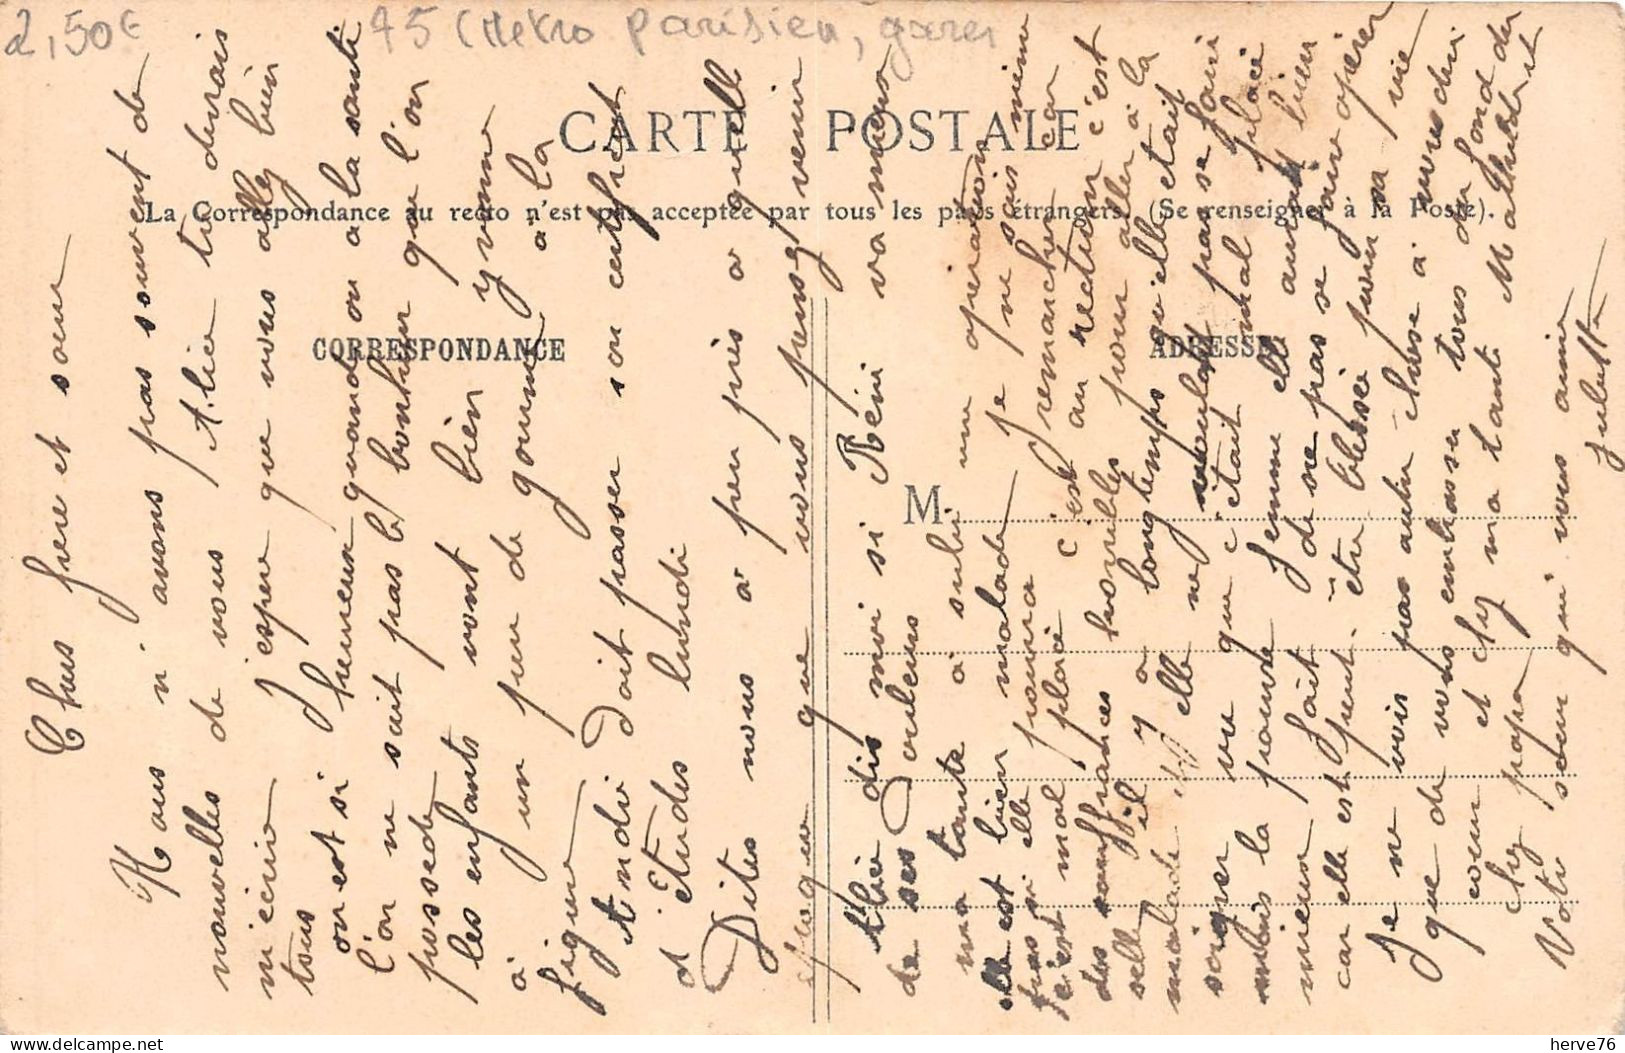 2,50€
75 (Metro parisien, gares
CARTE POSTALE
La Correspondance au recto n'est pas acceptée par tous les pays étrangers. (Se renseigner à la Poste).
CORRESPONDANCE
ADRESSE
M
Chers frere et sœur
Nous n'avons pas souvent de
nouvelles de vous Alice tu devrais
m'ecrire J'espere que vous allez bien
tous
on est si heureux quand on a la santé
l'on ne sait pas le bonheur que l'on
possede
les enfants vont bien yvonne
à un peu de gourme à la
figure
Andre doit passer son certificat
d'Etudes lundi
Dites nous a peu près a quelle
époque que vous pensez venir
Alice dis moi si Réné va mieux
de ses douleurs
ma tante à subi une opération
elle est bien malade je ne sais meme
pas si elle pourra remarcher car
c'est mal placé c'est au rection c'est
des souffrances horribles pour aller à la
selle il y a longtemps qu'elle était
malade elle ne voulait pas se faire
soigner vu que c'était mal placé
mais la pauvre femme elle aurait bien
mieux fait de ne pas se faire opérer
car elle est peut-être blessée pour sa vie
Je ne vois pas autre chose à vous dire
que de vous embrasser tous du fond du
cœur et chez ma tante Mathilde et
chez papa
Votre sœur qui vous aime
Juliette
herve76